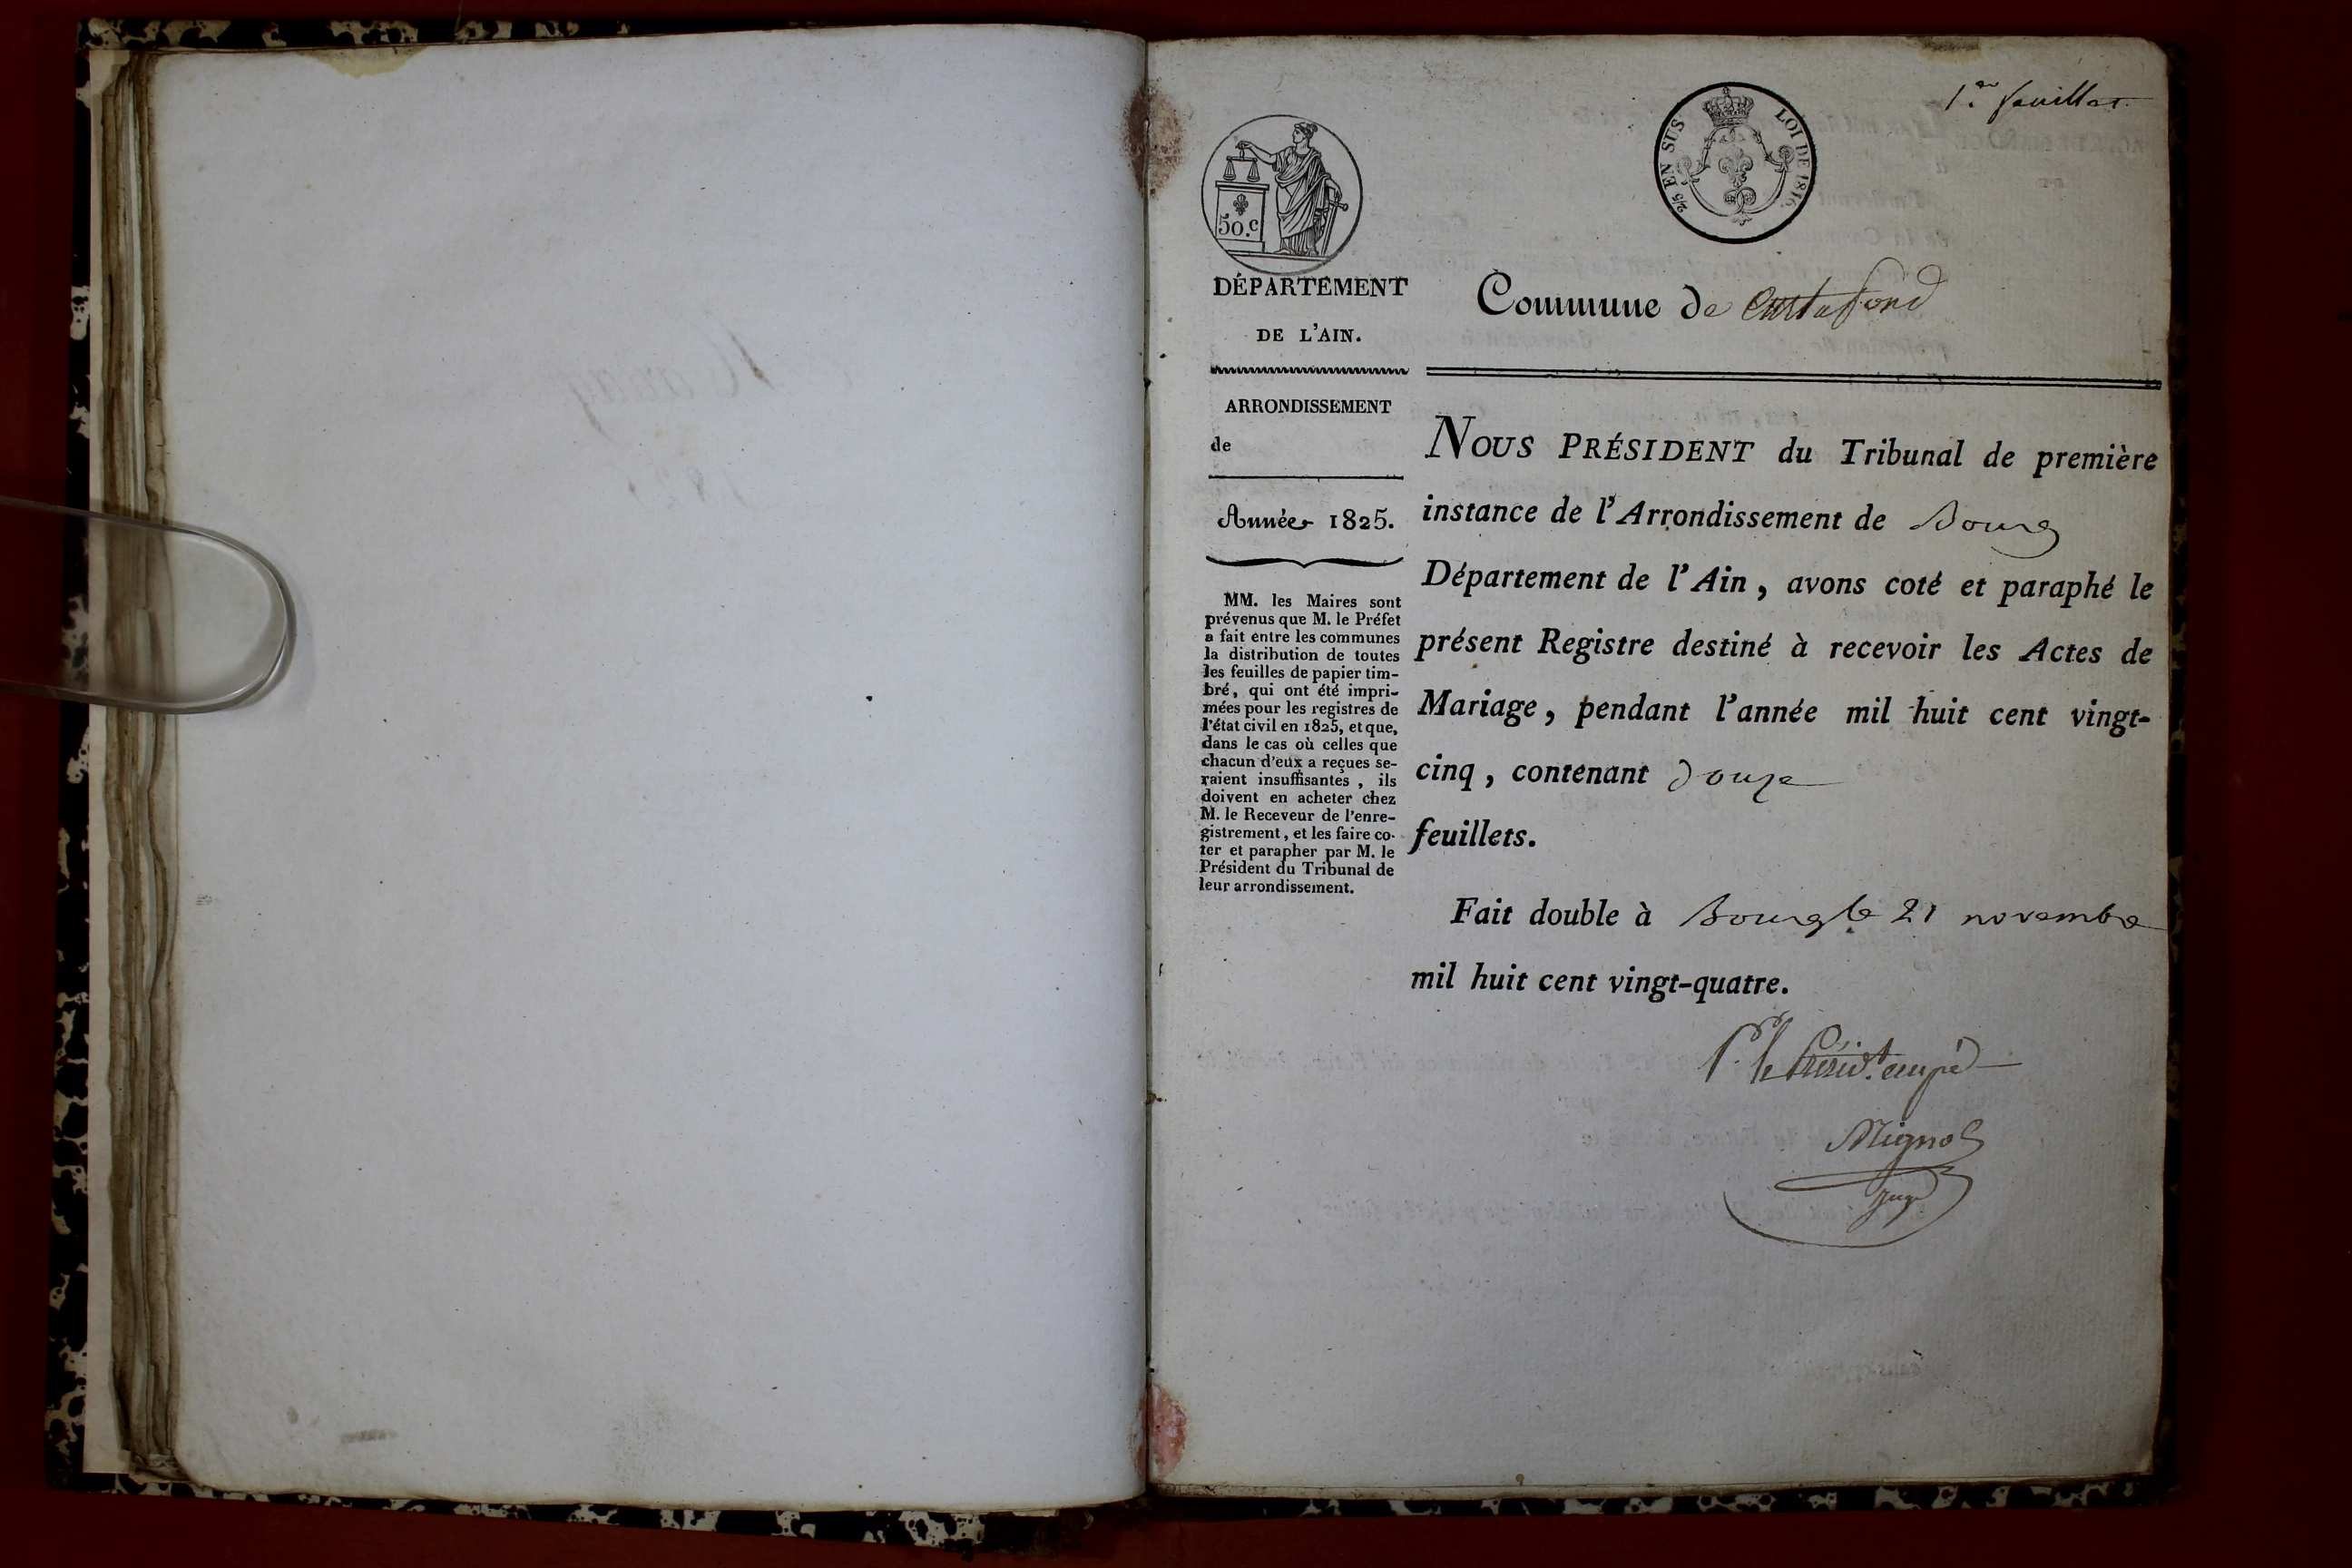 1.er feuillet
2/5 EN SUS LOI DE 1816
50.c
DÉPARTEMENT
DE L'AIN.
Commune de Curtafond
ARRONDISSEMENT
de
Année 1825.
MM. les Maires sont
prévenus que M. le Préfet
a fait entre les communes
la distribution de toutes
les feuilles de papier tim-
bré, qui ont été impri-
mées pour les registres de
l'état civil en 1825, et que,
dans le cas où celles que
chacun d'eux a reçues se-
raient insuffisantes, ils
doivent en acheter chez
M. le Receveur de l'enre-
gistrement, et les faire co-
ter et parapher par M. le
Président du Tribunal de
leur arrondissement.
NOUS PRÉSIDENT du Tribunal de première
instance de l'Arrondissement de Bourg
Département de l'Ain, avons coté et paraphé le
présent Registre destiné à recevoir les Actes de
Mariage, pendant l'année mil huit cent vingt-
cinq, contenant douze
feuillets.
Fait double à Bourg le 21 novembre
mil huit cent vingt-quatre.
Pr. le Présidt. empé
Mignot
juge